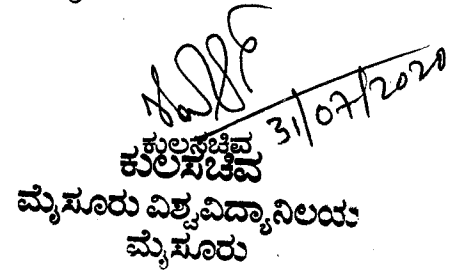 31/07/2020
ಕುಲಸಚಿವ
ಕುಲಸಚಿವ
ಮೈಸೂರು ವಿಶ್ವವಿದ್ಯಾನಿಲಯ
ಮೈಸೂರು